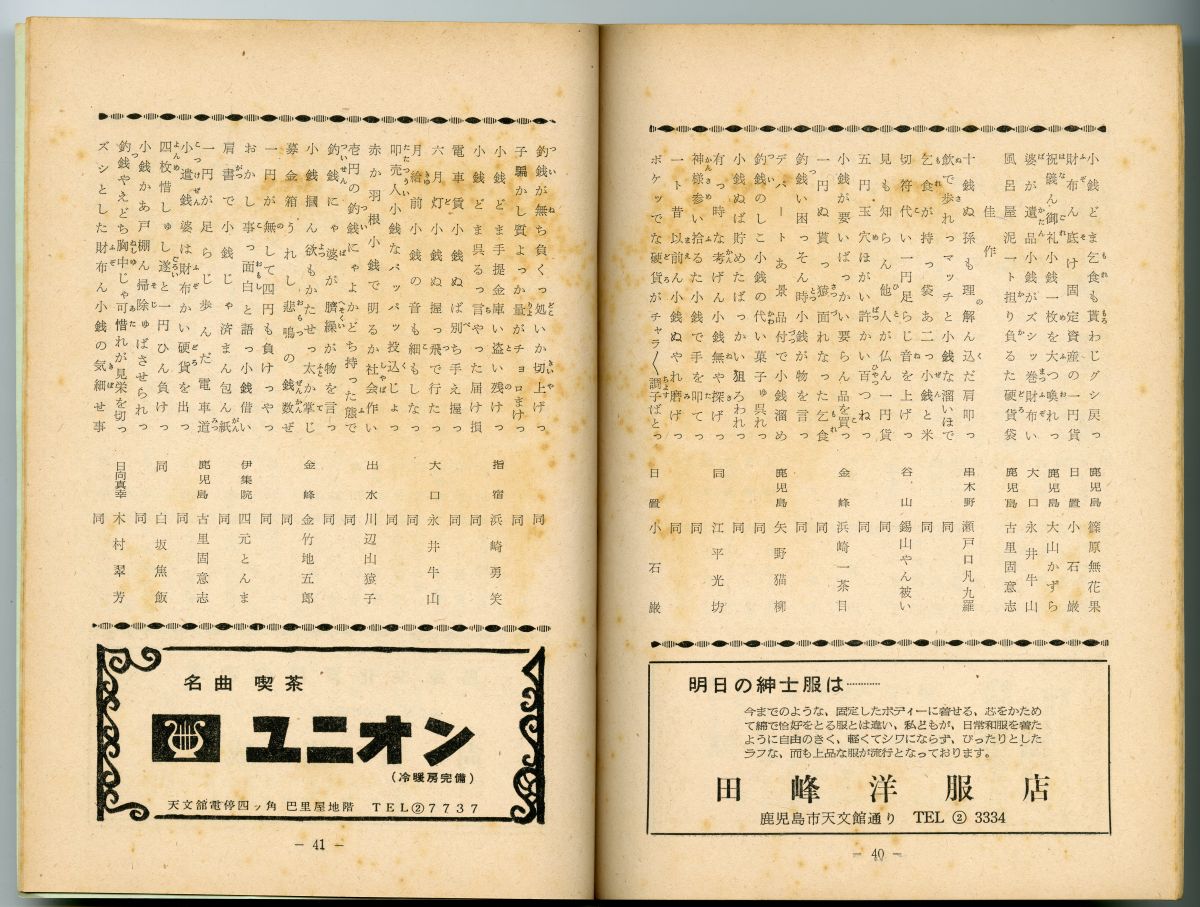 小銭どま乞食も貰わじグシ戻っ 鹿児島 篠原無花果
財布ん底け固定資産の一円貨 日置 小石巌
祝儀ん御礼小銭一枚を大つ喚れっ 鹿児島 大山かずら
婆が遺品小銭がズシッ巻財布い 大口 永井牛山
風呂屋泥一ト担り負るた硬貨袋 鹿児島 古里固意志
佳作
十銭ぬ孫も理解ん込だ肩叩っ 串木野 瀬戸口凡九羅
飲で歩れっマッチと小銭な溜いほで 同
乞食が持っ袋あ二っ小銭と米 同
切符代い一円足らじ音を上げっ 谷山 錫山やん被い
見も知らん他人が仏ん一円貨 同
五円玉穴ほがい許かい百つねっ 同
小銭が要いばっかい要らん品を買っ 金峰 浜崎一茶目
一円ぬ貰っ猿面れなった乞食 同
釣銭い困っそん時小銭が物を言っ 同
デパートあ景品付で小銭溜め 鹿児島 矢野猫柳
釣銭のしこ小銭の代い菓子ゅ呉れっ 同
小銭ぬば貯めたばっかい狙ろわれっ 同
有っ時な考げん小銭無や探げっ 同 江平光坊
神様参い拾るた小銭で手を叩てっ 同
一ト昔以前ん小銭ぬやれ磨げっ 同
ポケッでな硬貨がチャラ〱調子ばとっ 日置 小石巌
明日の紳士服は…………
今までのような、固定したボディーに着せる、芯をかため
て綿で恰好をとる服とは違い、私どもが、日常和服を着た
ように自由のきく、軽くてシワにならず、ぴったりとした
ラフな、而も上品な服が流行となっております。
田峰洋服店
鹿児島市天文館通り TEL ② 3334
— 40 —
釣銭が無ち負くっ処いか切上げっ 同
子騙かし質よっか量がチョロまけっ 同
小銭どま手提金庫い盗い残けっ 指宿 浜崎勇笑
小銭どま呉るっ言ちやった届け損 同
電車賃小銭ぬば別っち手え握っ 同
六月灯小銭ぬ握っ飛で行たっ 大口 永井牛山
月給前小銭の音もしなたっ 同
叩売人小銭なパッパッ投込じょっ 同
赤か羽根小銭で明るか社会作い 出水 川辺山猿子
壱円の釣銭にゃよかどち持った態で 同
釣銭にゃば婆が臍繰が物を言っ 同
小銭摑ん欲もかたせっ太か掌じ 金峰 金竹地五郎
募金箱うれし悲鳴の銭数ぜ 同
一円が無して四円も負けっやっ 同
おかし事っ面白と語っ小銭借い 伊集院 四元とんま
肩書で小銭じゃ済まん包ん紙 同
一円が足らじ歩んだ電車道 鹿児島 古里固意志
小遣銭婆は財布かい硬貨を出っ 同
四枚惜しゅし遂と一円ひん負けっ 同 白坂焦飯
小銭かあ戸棚ん掃除ゅばさせられっ 同
釣銭やえどち胸中じゃ可惜れが見栄を切っ 日向真幸 木村翠芳
ズシとした財布ん小銭の気細せ事 同
名曲 喫茶
ユニオン
(冷暖房完備)
天文舘電停四ッ角 巴里屋地階 TEL②7737
— 41 —